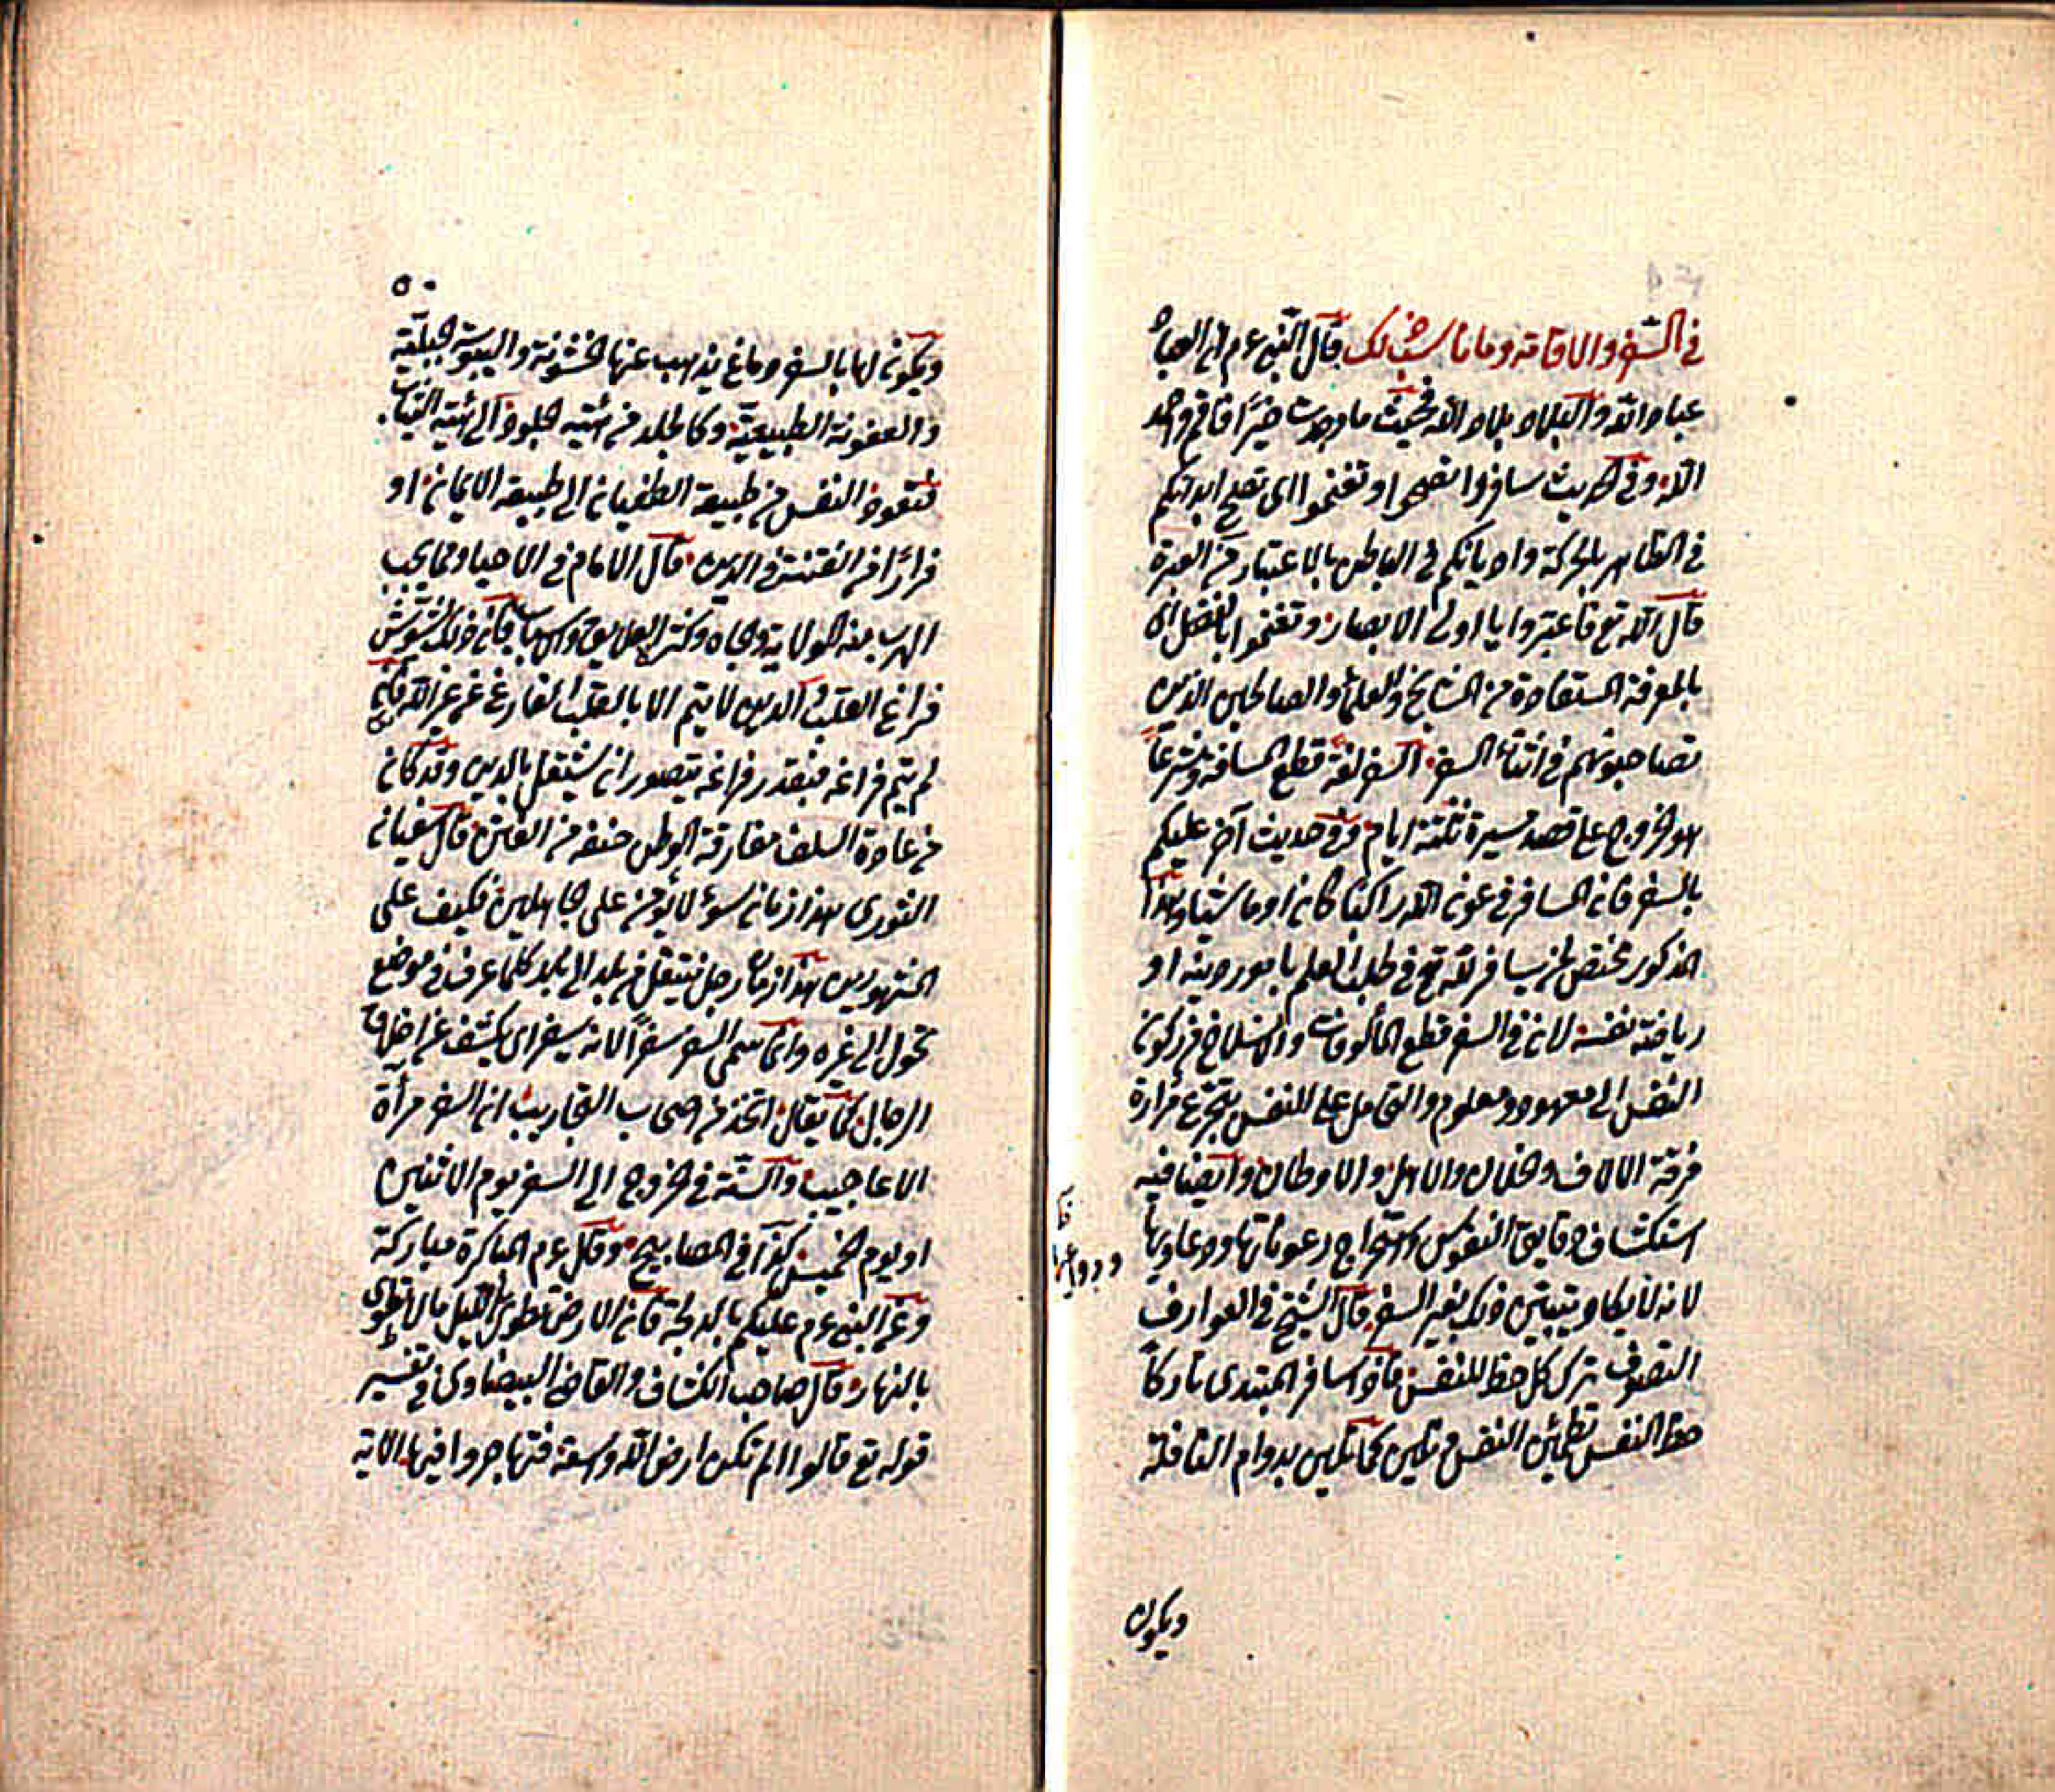 في السفر والاقامة وما يناسب ذلك قال النبي عم ان العباد
عباد الله والبلاد بلاد الله فحيث ما وجدت خيرًا فاقم واحمد
الله وفي الحديث سافروا تصحوا وتغنموا اى تصلح ابدانكم
في الظاهر بالحركة واديانكم في الباطن بالاعتبار من العبرة
قال الله تع فاعتبروا يا اولى الابصار وتغنموا بالفضل اى
بالمعرفة المستفادة من المشايخ والعلماء والصالحين الذين
تصاحبونهم في اثناء السفر السفر لغةً قطع المسافة وشرعاً
هو الخروج على قصد مسيرة ثلثة ايام وفي حديث آخر عليكم
بالسفر فان المسافر في عون الله راكبا كان او ماشيا وهذا
المذكور مختص لمن يسافر لله تع في طلب العلم بامور دينه او
رياضة نفسه لان في السفر قطع المألوفات والانسلاخ من ركون
النفس الى معهود ومعلوم والتحامل على النفس بتجرع مرارة
فرقة الالاف والخلان والاهل والاوطان وايضا فيه
استكشاف دقايق النفوس واستخراج رعوناتها ودعاويها
لانه لا يكاد يتبين ذلك بغير السفر قال الشيخ في العوارف
التصوف ترك كل حظ للنفس فاذا سافر المبتدى تاركاً
حظ النفس تطمئن النفس وتلين كما تلين بدوام النافلة
ويكون
٥٠
ويكون لها بالسفر دباغ يذهب عنها الخشونة واليبوسة الجبلية
والعفونة الطبيعية وكالجلد من هيئة الجلود الى هيئة الثياب
فتعود النفس من طبيعة الطغيان الى طبيعة الايمان او
فرارًا من الفتنة في الدين قال الامام في الاحيا ومما يجب
الهرب منه الولاية والجاه وكثرة العلايق والاسباب فان ذلك يشوش
فراغ القلب والدين لا يتم الا بالقلب الفارغ عن غير الله فان
لم يتم فراغه فبقدر فراغه يتصور ان يشتغل بالدين وقد كان
من عادة السلف مفارقة الوطن خيفة من الفتن قال سفيان
الثورى هذا زمان سوء لا يؤمن على الجاهلين فكيف على
المشهورين هذا زمان رجل ينتقل من بلد الى بلد كلما عرف في موضع
تحول الى غيره وانما سمى السفر سفراً لانه يسفر اى يكشف عن اخلاق
الرجال كما يقال اتخذ من اصحاب التجاريب ان السفر مرآة
الاعاجيب والسنة في الخروج الى السفر يوم الاثنين
او يوم الخميس كذا في المصابيح وقال عم المباكرة مباركة
وعن النبي عم عليكم بالدلجة فان الارض تطوى بالليل ما لا تطوى
بالنهار وقال صاحب الكشاف والقاضي البيضاوى في تفسير
قوله تع قالوا الم تكن ارض الله واسعة فتهاجروا فيها الاية